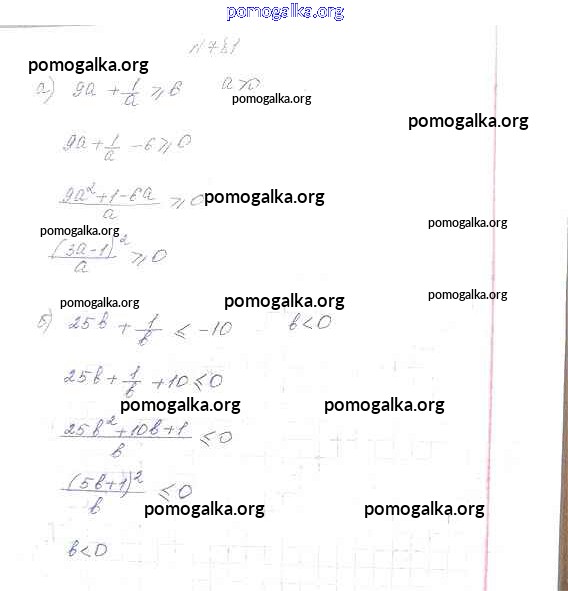 pomogalka.org
N 781
pomogalka.org
а) 9a + 1/a ≥ 6 a > 0
pomogalka.org
pomogalka.org
9a + 1/a - 6 ≥ 0
(9a² + 1 - 6a)/a ≥ 0
pomogalka.org
pomogalka.org
pomogalka.org
(3a - 1)²/a ≥ 0
pomogalka.org
pomogalka.org
pomogalka.org
б) 25b + 1/b ≤ -10 b < 0
25b + 1/b + 10 ≤ 0
pomogalka.org
pomogalka.org
(25b² + 10b + 1)/b ≤ 0
(5b + 1)²/b ≤ 0
pomogalka.org
pomogalka.org
b < 0
pomogalka.org
pomogalka.org